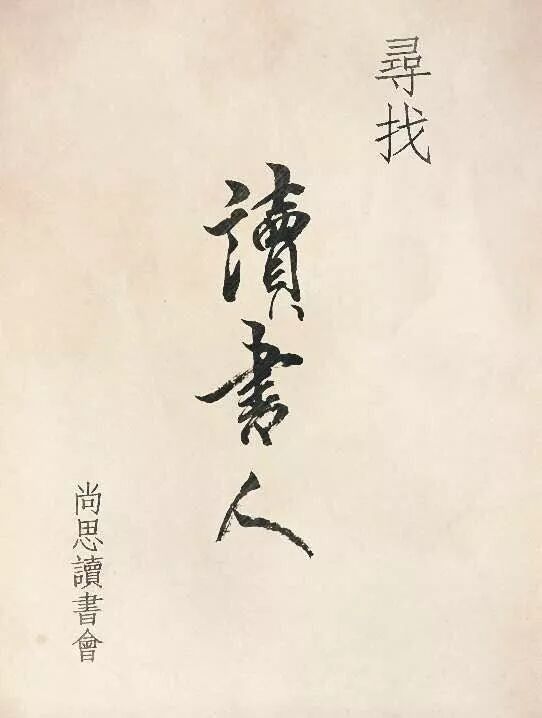 尋找
讀書人
尚思讀書會